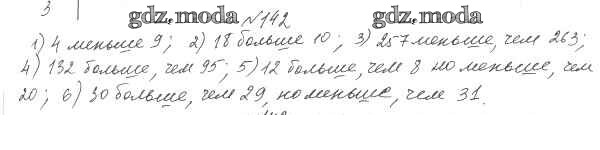 3
gdz.moda №142 gdz.moda
1) 4 меньше 9; 2) 18 больше 10; 3) 257 меньше, чем 263;
4) 132 больше, чем 95; 5) 12 больше, чем 8 но меньше, чем
20; 6) 30 больше, чем 29, но меньше, чем 31.